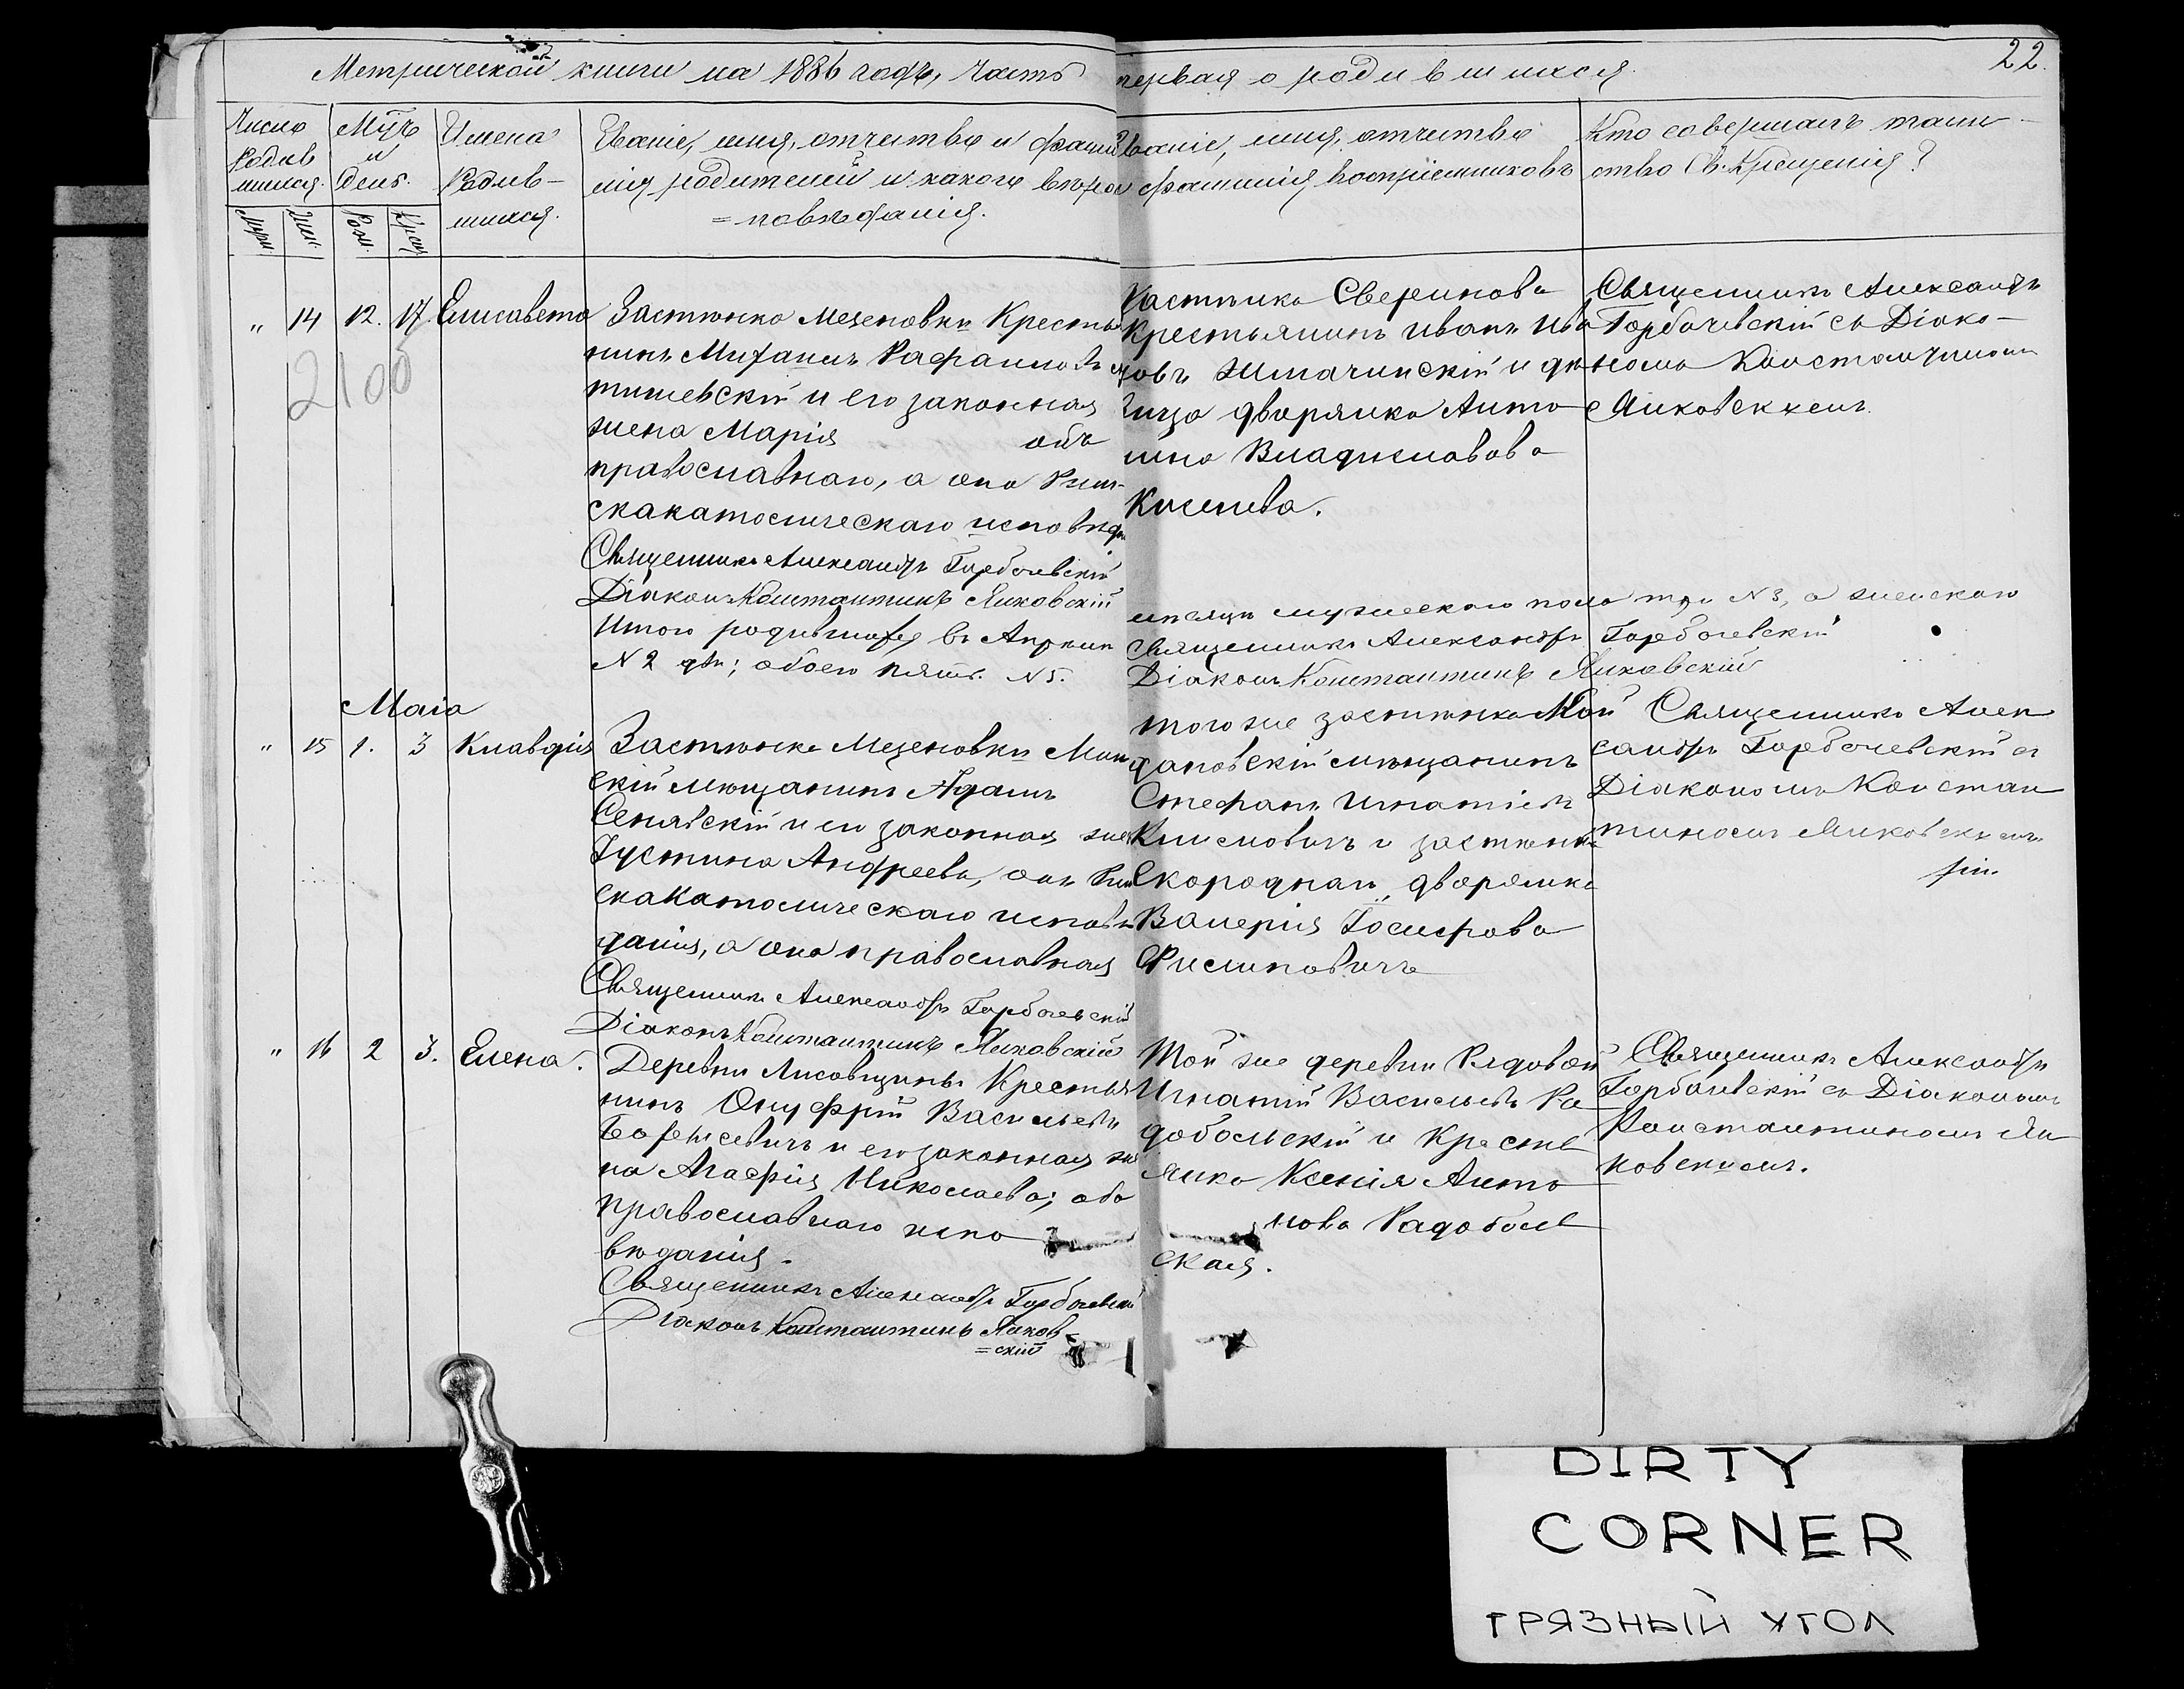 Метрической книги на 1886 годъ, часть первая о родившихся.
22.
Число
Родив
шихся.
Муж.
Жен.
Мѣс.
и
день.
Рож.
Крещ
Имена
Родив-
шихся.
Званіе, имя, отчество и фами
лія родителей и какого вѣрои
=повѣданія.
Званіе, имя, отчество
фамилія воспріемниковъ
Кто совершалъ таин-
ство Св. Крещенія?
" 14 12. 17. Елисавета
2100
Застѣнка Мезеновки Крестья
нинъ Михаилъ Рафаиловъ
тишевскій и его законная
жена Марія онъ
православнаго, а она Рим-
скакатолическаго исповѣда
Священникъ Александръ Горбачевскій
Діаконъ Константинъ Янковскій
Итого родившихся въ Апрѣли
N 2 два; обоего пять. N 5.
Застѣнка Сверинова
Крестьянинъ Иванъ Ива
новъ и дѣ
вица дворянка Анто
нина Владиславова
Киселева.
Священникъ Александръ
Горбачевскій съ Діако-
номъ Константиномъ
Янковскимъ.
мѣсяцѣ мужескаго пола три N 3, а женскаго
Священникъ Александръ Горбачевскій
Діаконъ Константинъ Янковскій
Маія
" 15 1. 3 Клавдія
Застѣнка Мезеновки Мин
скій мѣщанинъ Адамъ
Сенявскій и его законная жен
Іустина Андреева, онъ Рим
скакатолическаго исповѣ
данія, а она православная
Священникъ Александръ Горбачевскій
Діаконъ Константинъ Янковскій
того же застѣнка Кой
дановскій мѣщанинъ
Стефанъ Игнатіевъ
Климовичъ и застѣнка
Скородная, дворянка
Валерія Іосифова
Филиповичъ
Священникъ Алек
сандръ Горбачевскій съ
Діакономъ Констан
тиномъ Янковскимъ
" 16 2 3. Елена.
Деревни Лисовщины Крестья
нинъ Онуфрій Васильевъ
и его законная же
на Агафія Николаева; оба
православнаго испо
вѣданія.
Священникъ Александръ Горбачевскій
Діаконъ Константинъ Янков-
=скій
Той же деревни Рядовой
Игнатій Васильевъ Ра
добольскій и Кресть
янка Ксенія Анто
нова Радоболь
ская.
Священникъ Александръ
Горбачевскій съ Діакономъ
Константиномъ Ян
ковскимъ.
DIRTY
CORNER
ГРЯЗНЫЙ УГОЛ